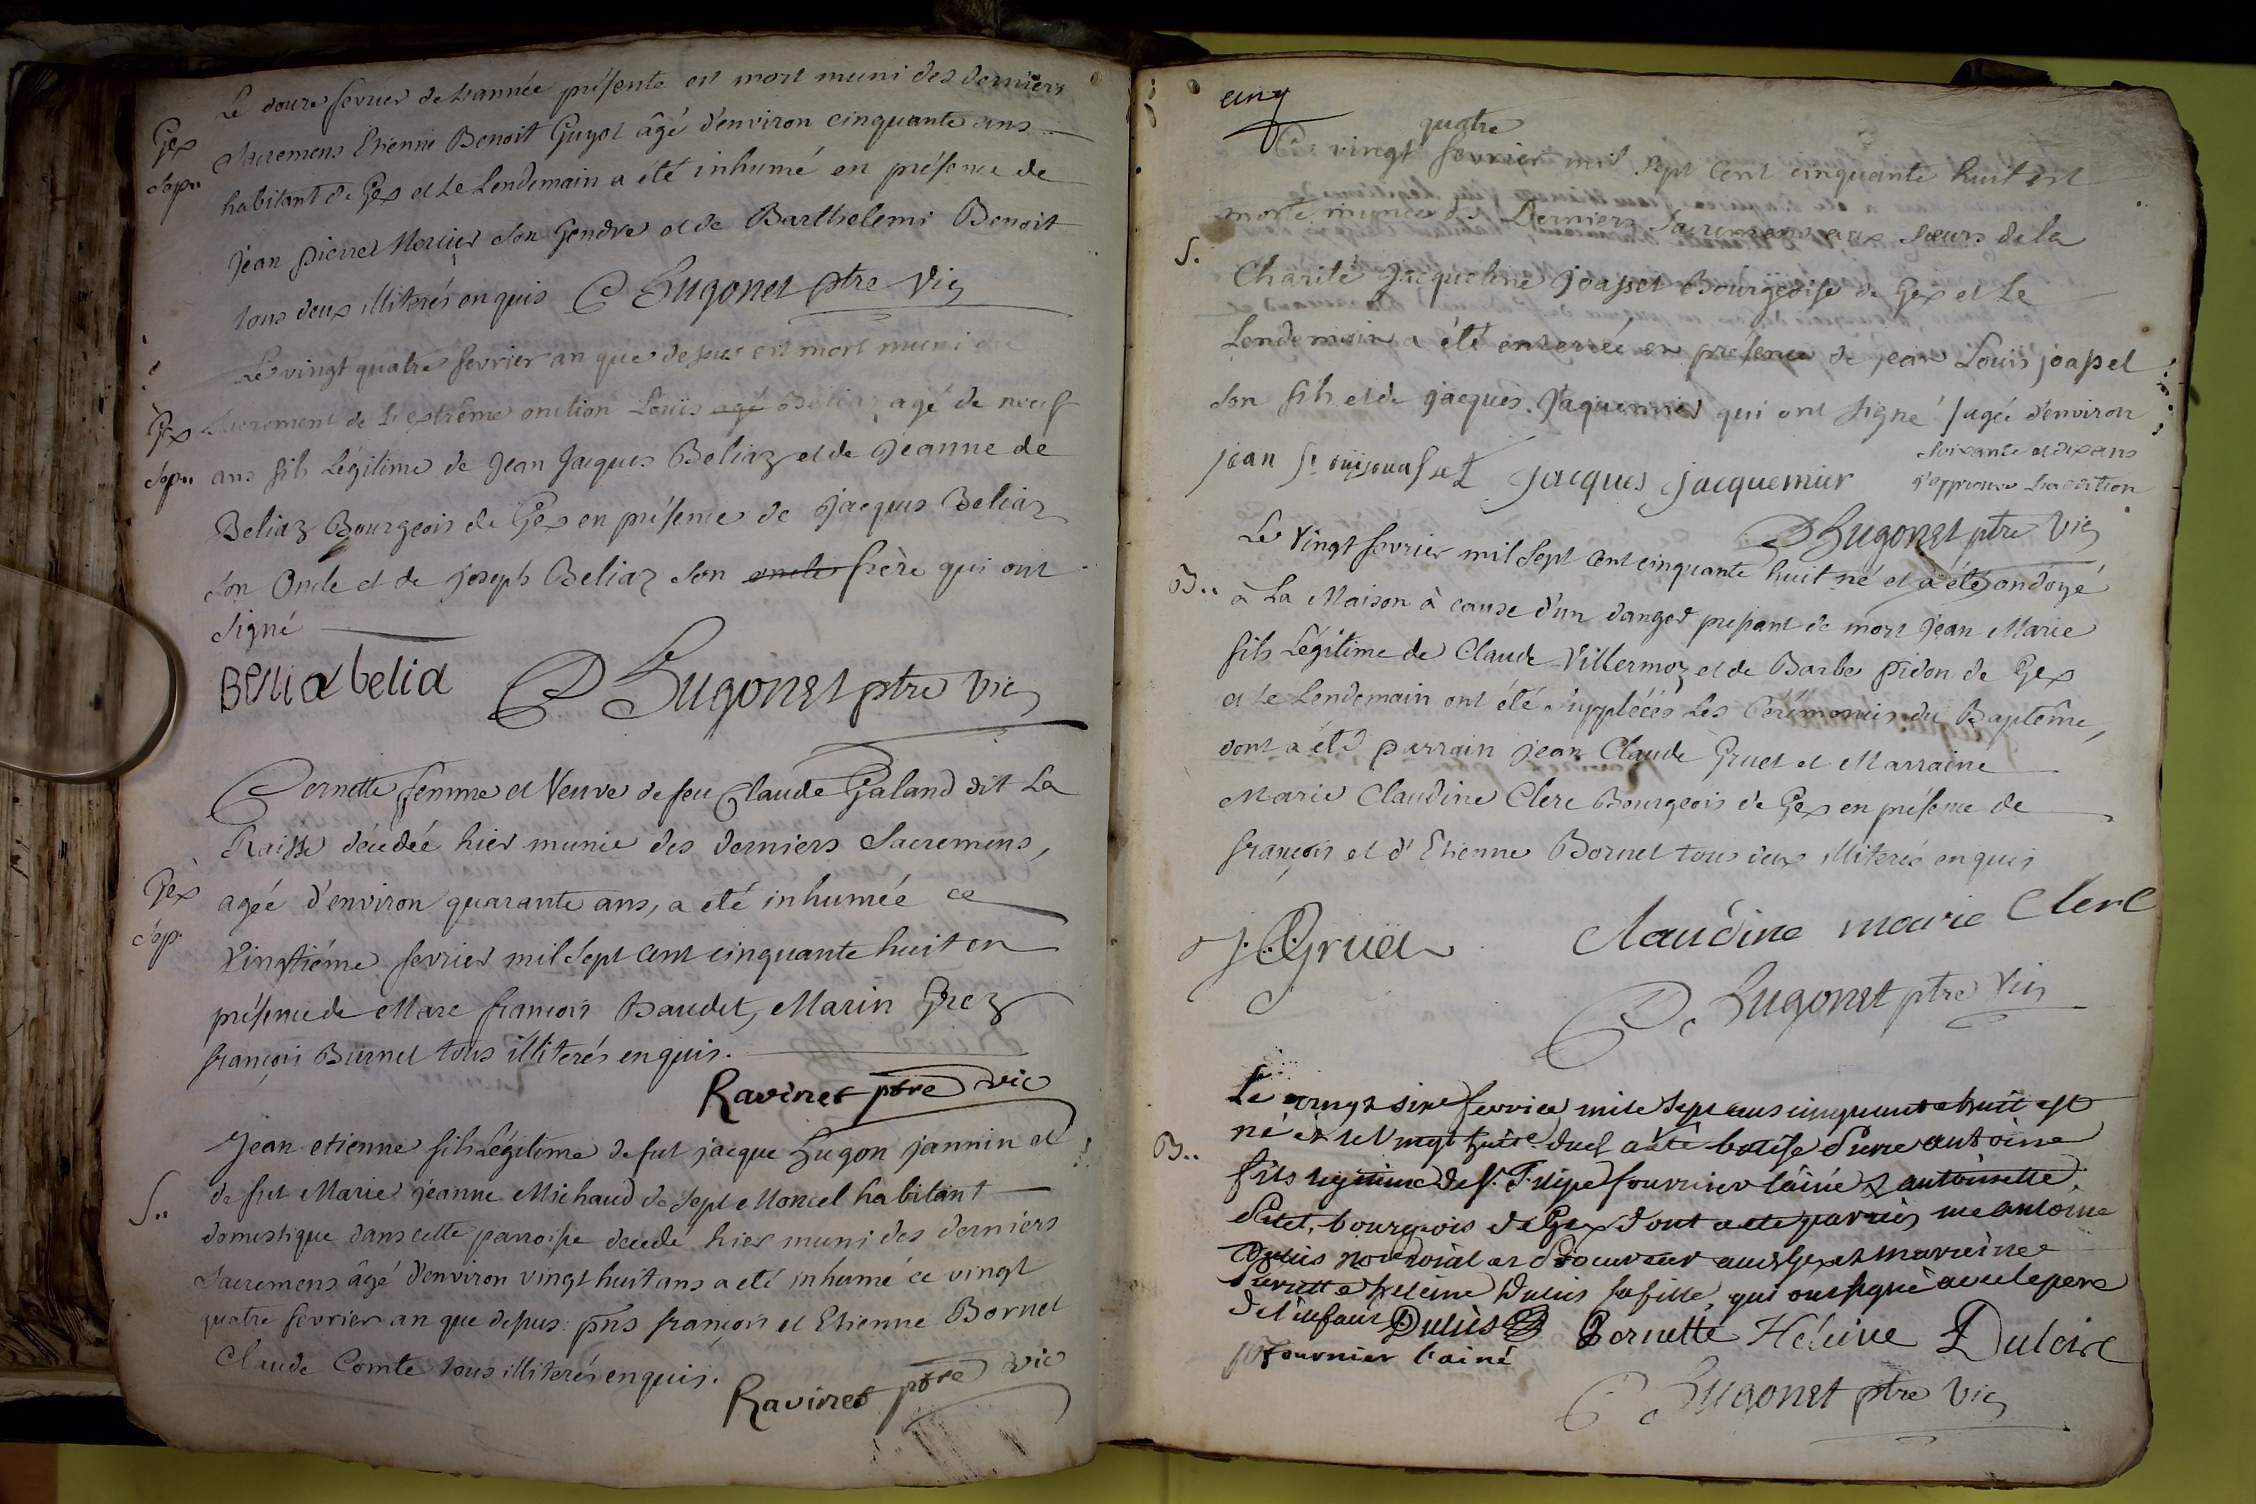 Le douze fevrier de l'année présente est mort muni des derniers
Gex
Sacremens Etienne Benoit Guyot âgé d'environ cinquante ans
Sepu
habitant de Gex et le Lendemain a été inhumé en présence de
jean pierre Mercier son Gendre et de Barthelemi Benoit
tous deux illiterés enquis Hugonet ptre Vic
Le vingt quatre fevrier an que dessus est mort muni du
Gex
Sacrement de L'extrême onction Louis agé Beliaz agé de neuf
Sepu
ans fils Légitime de Jean Jacques Beliaz et de Jeanne de
Beliaz Bourgeois de Gex en présence de jacques Beliaz
son Oncle et de joseph Beliaz son oncle frère qui ont
signé
belia Hugonet ptre Vic
Pernette femme et Veuve de feu Claude Galand dit La
Raisse décédée hier munie des derniers Sacremens,
Gex
agée d'environ quarante ans, a eté inhumée ce
Sep.
Vingtiéme fevrier mil sept cent cinquante huit en
présence de Marc françois Baudet, Marin Grez
françois Burnet tous illiterés enquis.
Ravinet ptre vic
Jean etienne fils Légitime de fut jacque Hugon jannin et
S..
de fut Marie jeanne Michaud de Sept Moncel habitant
domestique dans cette parroisse decedé hier muni des derniers
Sacremens âgé d'environ vingt huit ans a eté inhumé ce vingt
quatre fevrier an que dessus: pns françois et Etienne Bornet
Claude Comte tous illiterés enquis.
Ravinet ptre vic
cinq
quatre
Le vingt fevrier mil sept cent cinquante huit est
morte munie des Derniers Sacremens aux soeurs de la
S.
Charité Jacqueline Joasset Bourgeoise de Gex et Le
Lendemain a été enterrée en présence de jean Louis joasset
son fils et de jacques Jaquemier qui ont signé / agée d'environ
soixante et dix ans
j'approuve L'addition
jean jacques jacquemier
Hugonet ptre Vic
Le Vingt fevrier mil sept cent cinquante huit né et a été ondoyé
B..
à La Maison à cause d'un danger pressant de mort jean Marie
fils Légitime de Claude Villermoz et de Barbe Pidon de Gex
et Le Lendemain ont été suppléées Les Cérémonies du Baptême,
dont a été parrain jean Claude Gruet et Marraine
Marie Claudine Clerc Bourgeois de Gex en présence de
françois et d'Etienne Bornet tous deux illiterés enquis
J. C. Gruet Claudine marie Clerc
Hugonet ptre Vic
Le vingt six fevrier mile sept cens cinquante huit est
B..
né et le vingt huit dud a ete batise antoine
fils legitime de fournier lainé & antoinette
bourgeois de Gex dont a ete parrein me antoine
et marreine
heleine sa fille, qui ont signé avec le pere
de l'enfant
fournier l'ainé Pernette Heleine
Hugonet ptre Vic